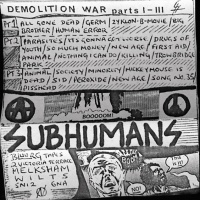 DEMOLITION WAR parts I-III
Pt 1 ALL GONE DEAD/GERM/ZYKLON-B-MOVIE/BIG
BROTHER/HUMAN ERROR
PARASITES/
DRUGS OF
YOUTH/SO MUCH MONEY/NEW AGE/FIRST AID/
ANIMAL/KILLING/TROWBRIDGE
PARK
ANIMAL/SOCIETY/MINORITY/MICKEY MOUSE IS
DEAD/SID/PEROXIDE/NEW AGE/SONG NO. 35
PISSHEAD
BOOOOM!
SUBHUMANS
BLUURG TAPES
2 VICTORIA TERRACE
MELKSHAM
WILTS
SN12 6NA
NO!